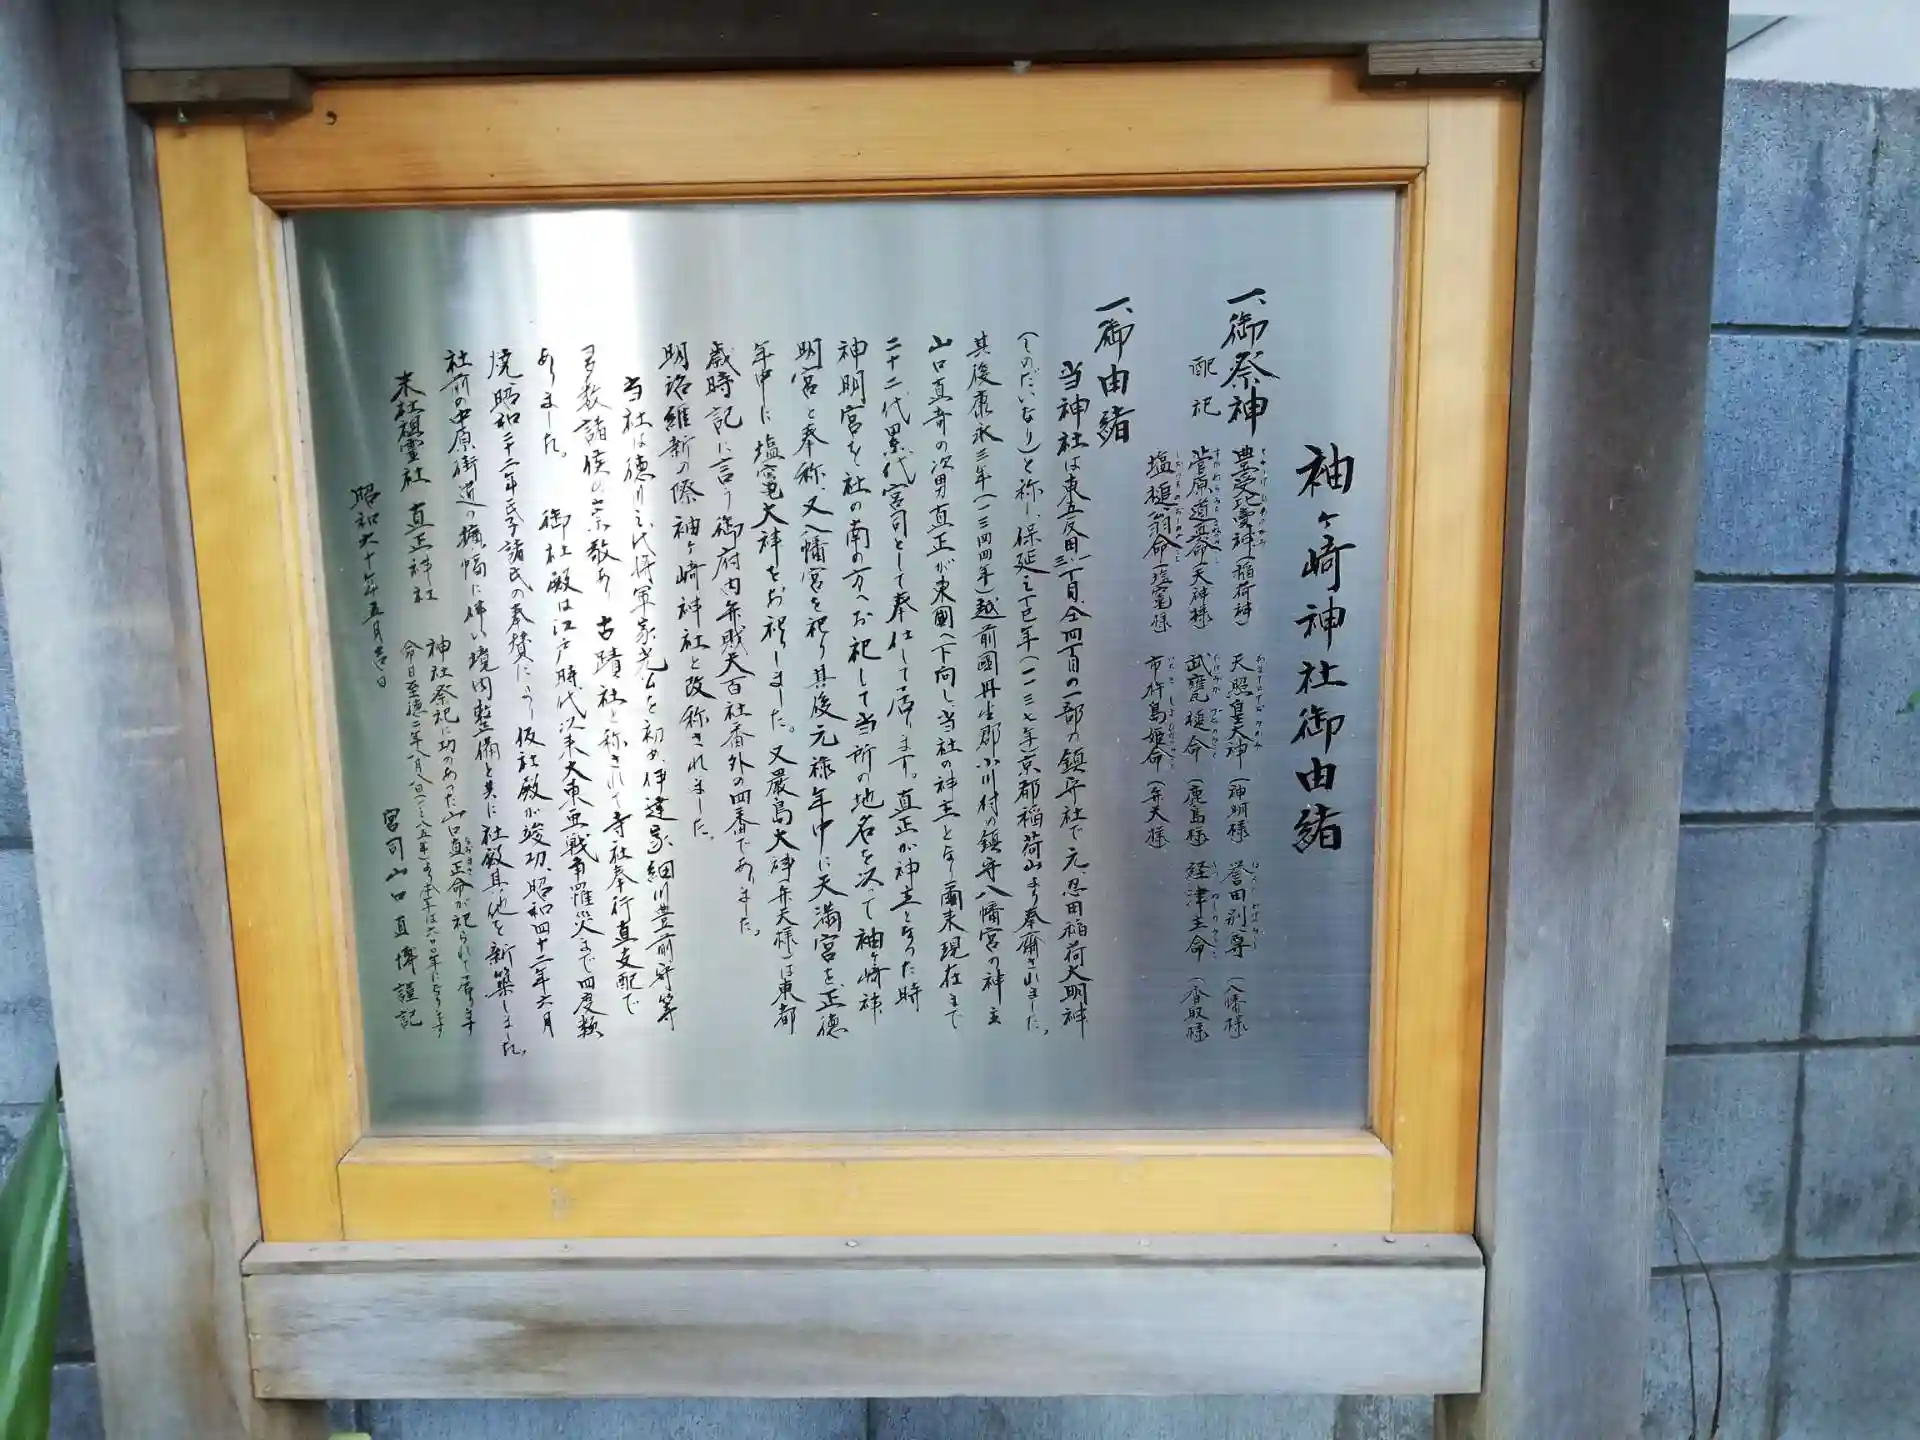 袖ヶ崎神社御由緒
一、御祭神 豊受姫之神(稲荷神) 天照皇大神(神明様 誉田別尊(八幡様
配祀 菅原道真命(天神様 武甕槌命(鹿島様 経津主命(香取様
塩槌翁命(塩竃様 市杵島姫命(弁天様
一、御由緒
当神社は東五反田一、三丁目、仝四丁目の一部の鎮守社で元、忍田稲荷大明神
(しのだいなり)と称し、保延三丁巳年(一一三七年)京都稲荷山より奉齋されました。
其後康永三年(一三四四年)越前國丹生郡小川村の鎮守八幡宮の神主
山口直奇の次男直正が東國へ下向し、当社の神主となり爾来現在まで
二十二代累代宮司として奉仕して居ります。直正が神主となった時
神明宮を社の南の方へお祀して当所の地名を次て袖ヶ崎神
明宮と奉称、又八幡宮を祀り其後元禄年中に天満宮を、正徳
年中に塩竃大神をお祀りしました。又厳島大神(弁天様)は東都
歳時記に言う御府内弁財天百社番外の四番であります。
明治維新の際袖ヶ崎神社と改称されました。
当社は徳川三代将軍家光公を初め、伊達家、細川豊前守等
多数諸侯の崇敬あり 古蹟社と称されて寺社奉行直支配で
ありました。 御社殿は江戸時代以来大東亜戦争羅災まで四度類
焼、昭和三十二年氏子諸氏の奉賛により仮社殿が竣功、昭和四十二年六月
社前の中原街道の擴幅に伴い境内整備と共に社殿其他を新築しました。
末社祖霊社 直正神社 神社祭祀に功のあった山口直正命が祀られて居ります
今日至徳二年八月八日(一三八五年)より本年は六百年になります
昭和六十年五月吉日 宮司 山口直博 謹記